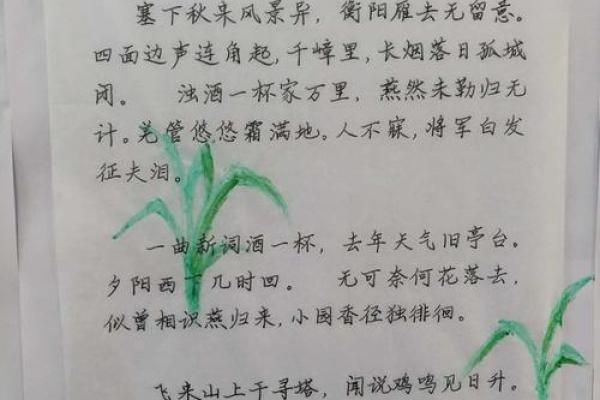 塞下秋来风景异，衡阳雁去无留意。
四面边声连角起，千嶂里，长烟落日孤城
闭。 浊酒一杯家万里，燕然未勒归无
计。羌管悠悠霜满地。人不寐，将军白发
征夫泪。
一曲新词酒一杯，去年天气旧亭台。
夕阳西下几时回。 无可奈何花落去，
似曾相识燕归来，小园香径独徘徊。
飞来山上千寻塔，闻说鸡鸣见日升。